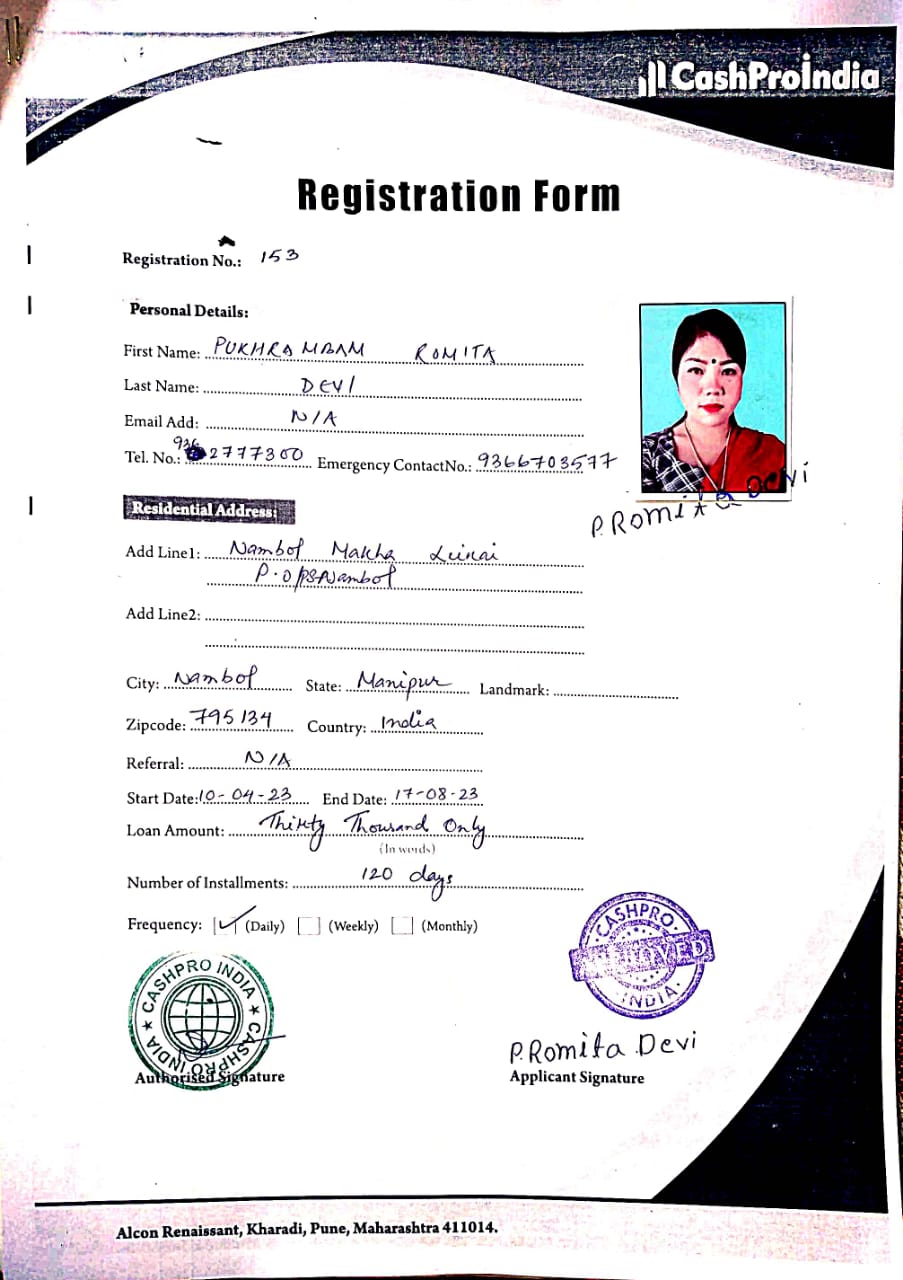 CashProIndia
Registration Form
Registration No.: 153
Personal Details:
First Name: PUKHRAMBAM ROMITA
Last Name: DEVI
Email Add: N/A
Tel. No.: 936 2777300 Emergency ContactNo.: 9366703577
P. ROMITA DEVI
Residential Address:
Add Line1: Nambol Makha Leikai
P.O/PS-Nambol
Add Line2:
City: Nambol State: Manipur Landmark:
Zipcode: 795134 Country: India
Referral: N/A
Start Date: 10-04-23 End Date: 17-08-23
Loan Amount: Thirty Thousand Only
(In words)
Number of Installments: 120 days
Frequency: (Daily) (Weekly) (Monthly)
CASHPRO INDIA
CASHPRO INDIA
CASHPRO
INDIA
P. Romita Devi
Authorised Signature
Applicant Signature
Alcon Renaissant, Kharadi, Pune, Maharashtra 411014.